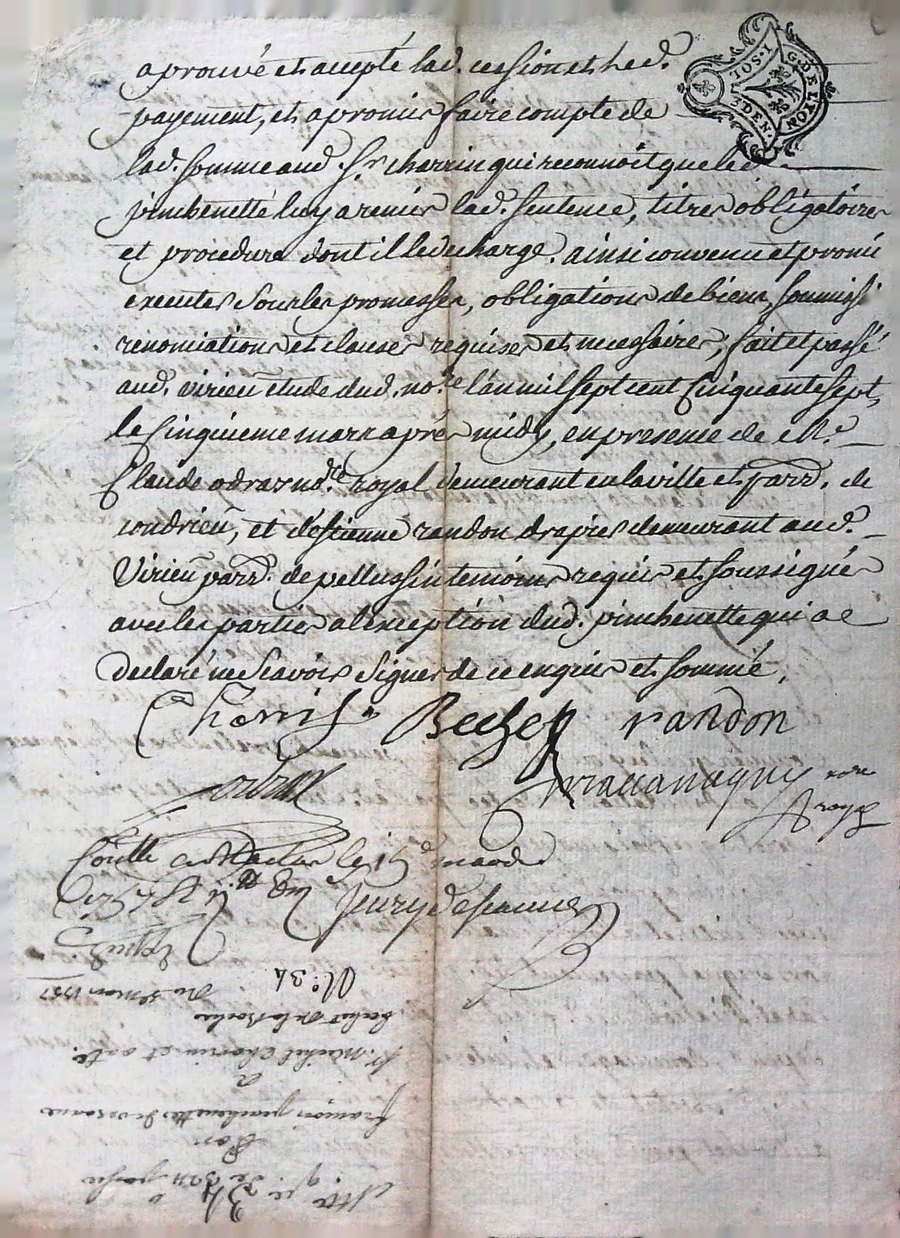 aprouvé et accepté lad. cession et led.
payement, et a promis faire compte de
lad. somme aud. Sr. charrin qui reconnoit que led
pinchenette luy a remis lad. sentence, titres obligatoires
et procedure dont il le decharge. ainsi convenu et promis
executer sous les promesses, obligations de biens, soumissi
renonciations et clauses requises et necessaires, fait et passé
aud. virieu étude dud. nore. l'an mil sept cent Cinquante sept,
le Cinquieme mars aprés midy, en presence de Me.
Claude odras nd.re royal demeurant en la ville et parr. de
condrieu, et d'estienne randon drapier demeurant aud.
Virieu parr. de pellussin temoins requis et soussignés
avec les parties a l'exception dud. pinchenette qui a
declaré ne sçavoir signer de ce enquis et sommé.
Charrin Bechet randon
odras
Conllé le
TOS.I
G.DE
LYON
3DEN
No. 34
du 5 mars 1757
Sr. Michel Charrin et
a
françois pinchenette
Par